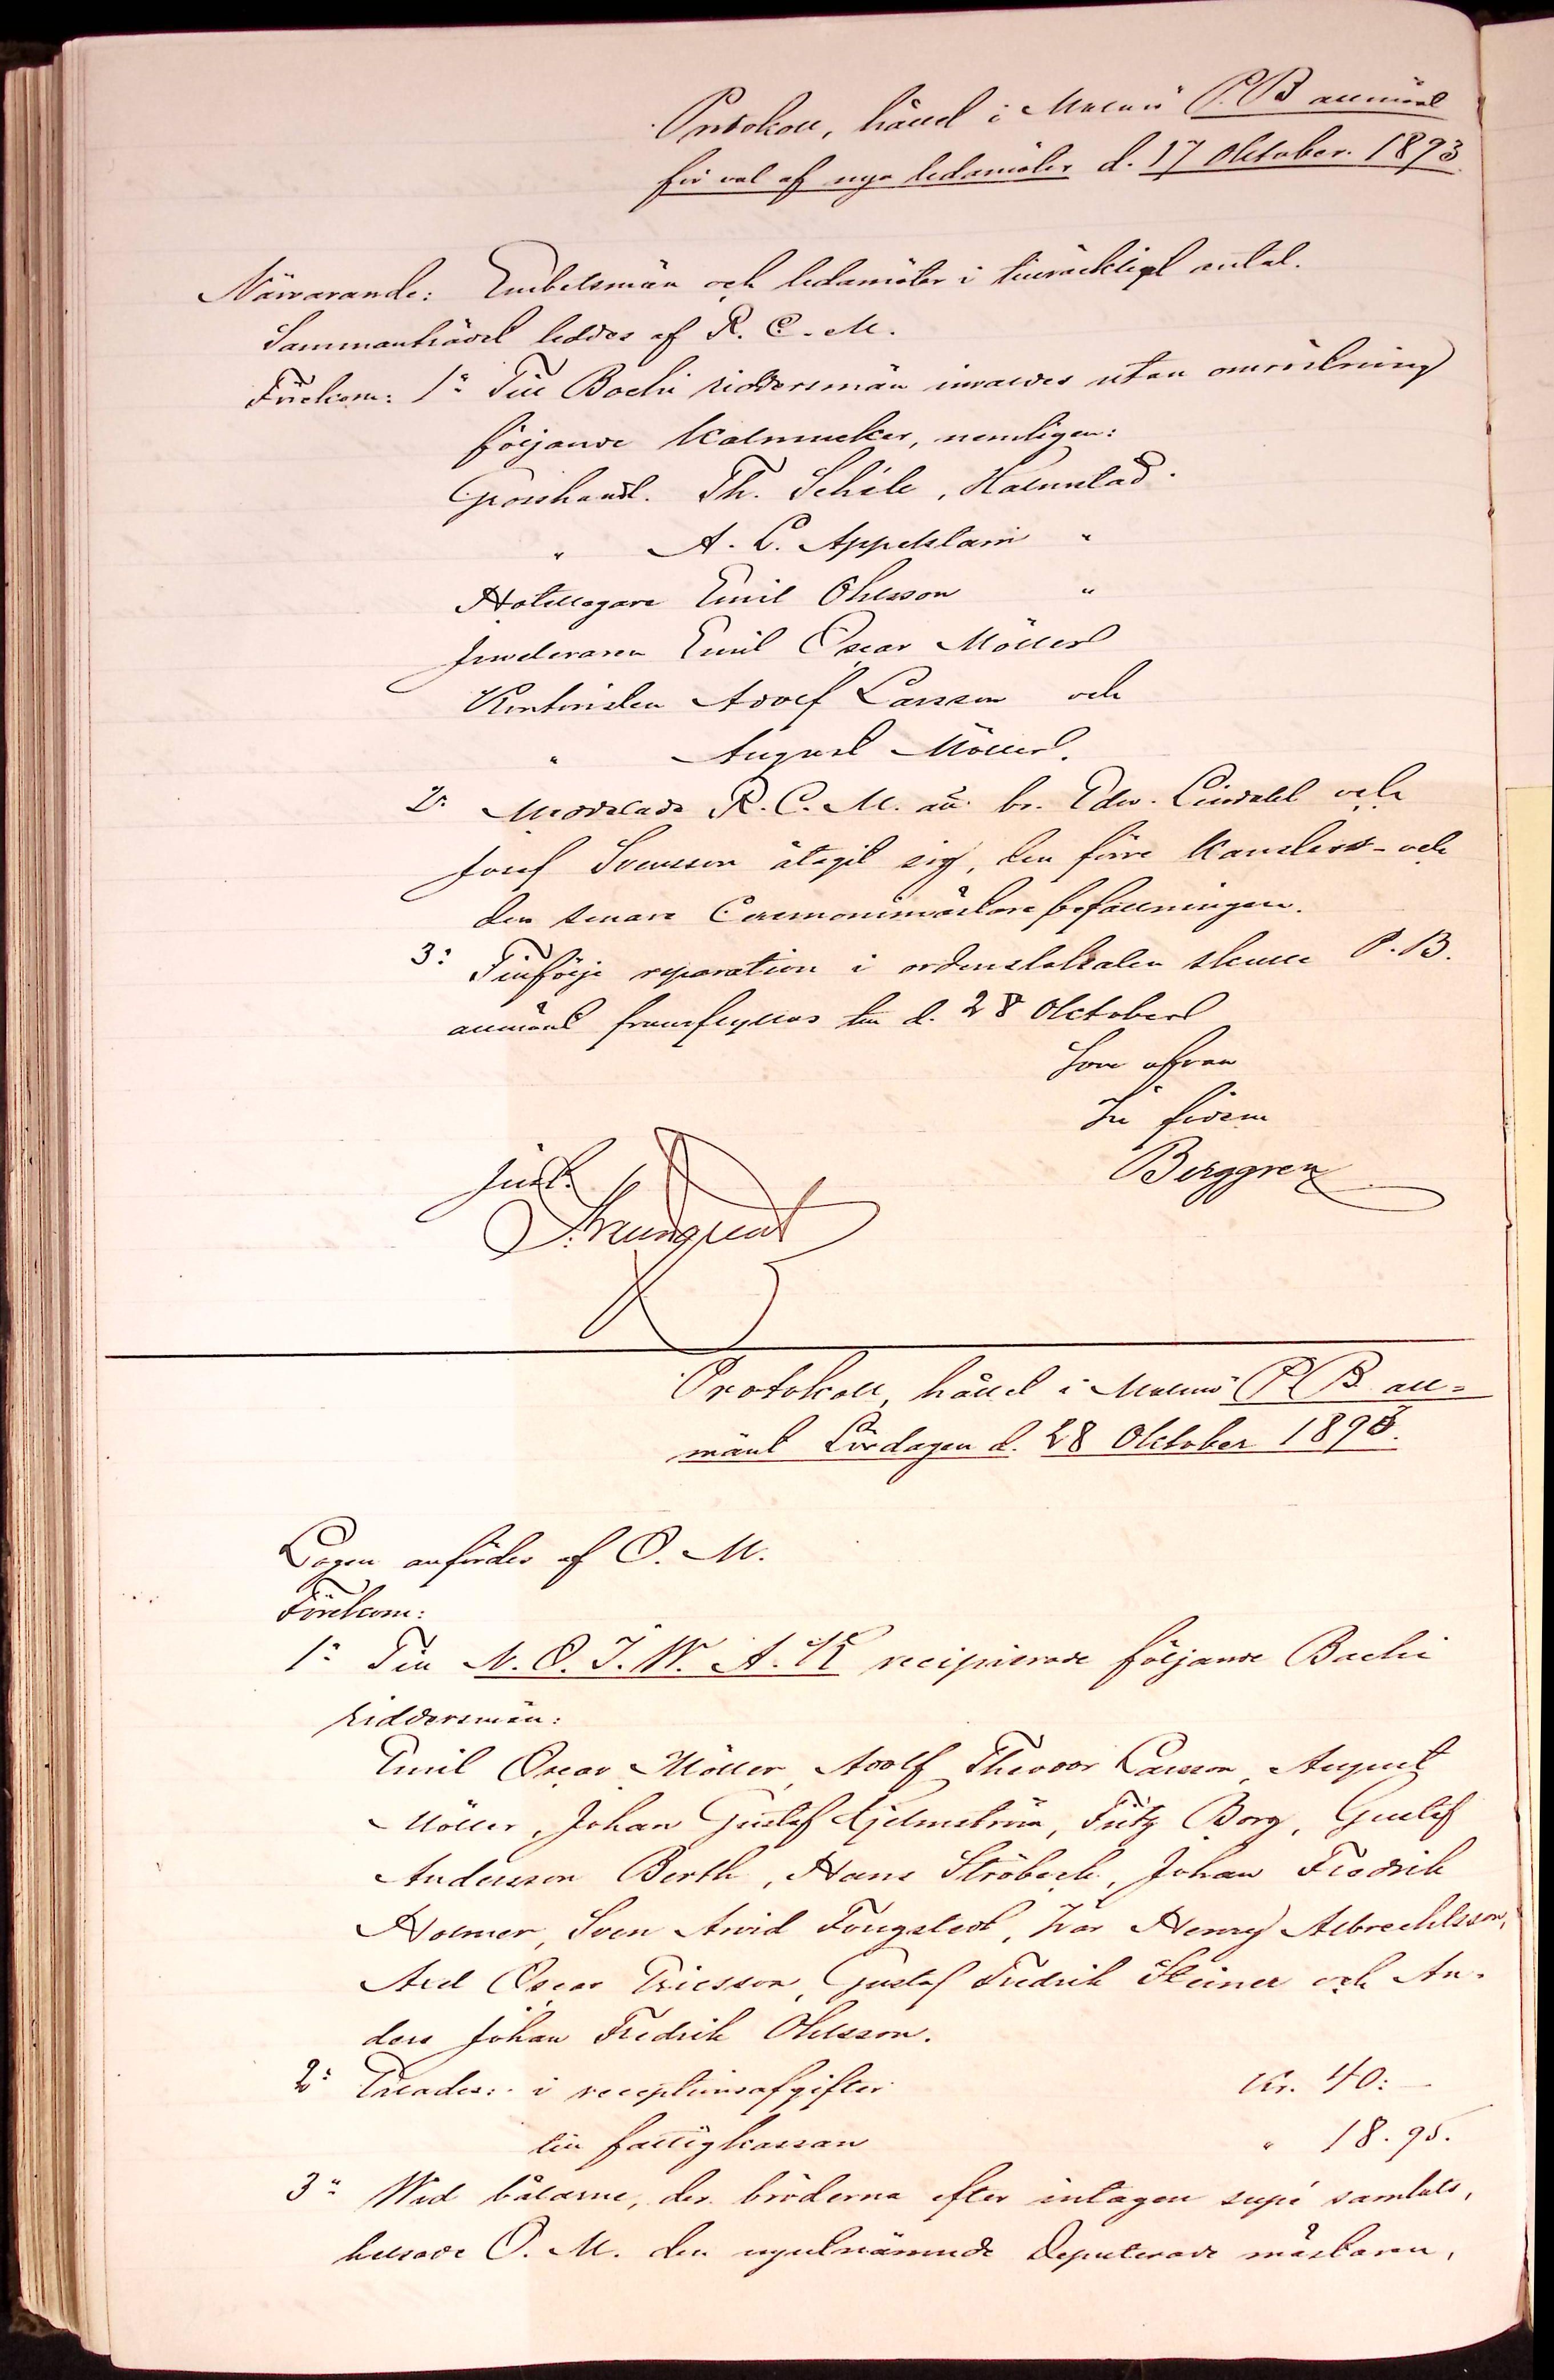 Protokoll, hållet i Malmö P.B allmänt
för val af nya ledamöter d. 17 Oktober. 1893.
Närvarande: Embetsmän och ledamöter i tillräckligt antal.
Sammanträdet leddes af R. C. M.
Förekom: 1º Till Bachi riddersmän invaldes utan omröstning
följande Kalmucker, nemligen:
Grosshandl. Th. Schéle, Halmstad.
" A. L. Appeltain "
Hotellegare Emil Ohlsson "
Juveleraren Emil Oscar Möller
Kontoristen Adolf Larsson och
" August Möller.
2º Meddelade R. C. M. att br. Edw. Lindahl och
Josef Svensson åtagit sig, den förre Kanslers- och
den senare Ceremonimästarebefattningen.
3º Till följe reparation i ordenslokalen skulle P. B.
allmänt framflyttas till d. 28 Oktober
Som ofvan
In fidem
Berggren
Just.
Protokoll, hållet i Malmö P. B. all=
mänt Lördagen d. 28 Oktober 1893.
Logen anfördes af O. M.
Förekom:
1º Till N. O. I. W. A. K recipierade följande Bachi
riddersmän:
Emil Oscar Möller, Adolf Theodor Larsson, August
Möller, Johan Gustaf Hjelmström, Fritz Borg, Gustaf
Andersson Berth, Hans Ströbeck, Johan Fredrik
Holmer, Sven Arvid Tongstedt, Ivar Henry Albrechtsson,
Axel Oscar Ericsson, Gustaf Fredrik Steiner och An-
ders Johan Fredrik Ohlsson.
2º Erlades: i receptionsafgifter Kr. 40:—
till fattigkassan " 18. 95.
3º Wid bålarne, der bröderna efter intagen supé samlats,
helsade O. M. den nyutnämnde Deputerade mästaren,